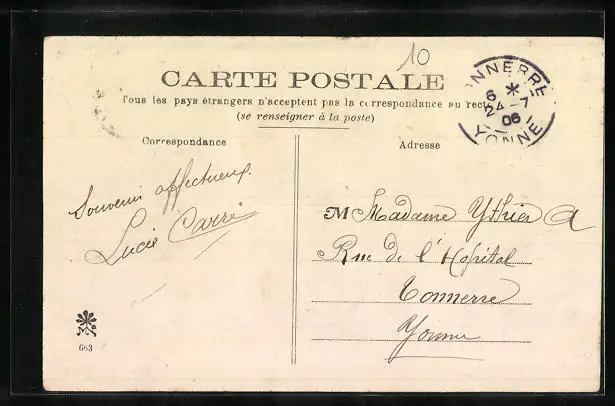 10
CARTE POSTALE
Tous les pays étrangers n'acceptent pas la correspondance au recto
(se renseigner à la poste)
ONNERRE
6 *
24 -7
06
YONNE
Correspondance
Souvenir affectueux.
Lucie Carré
Adresse
M Madame Ythier A
Rue de l'Hopital
Tonnerre
Yonne
663